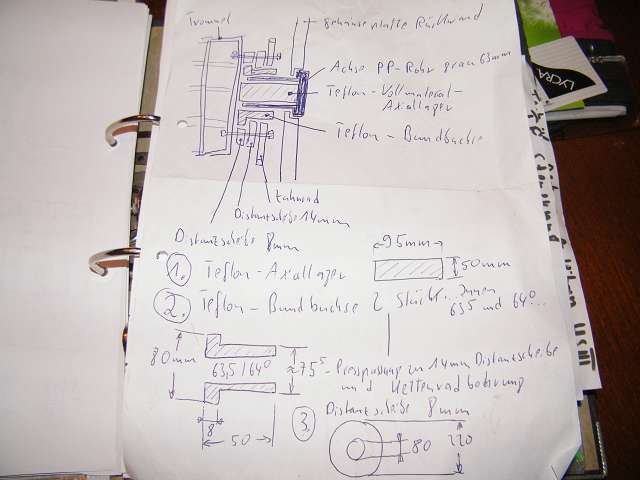 Trommel
gehäuseplatte Rückwand
Achse PP-Rohr grau 63mm
Teflon-Vollmaterial-
Axiallager
Teflon-Bundbuchse
Zahnrad
Distantscheibe 14mm
Distantscheibe 8mm
1. Teflon-Axiallager
95mm
50mm
2. Teflon-Bundbuchse 2 Stück!... Innen
63,5 und 64⁰...
80mm
63,5/64⁰
≈75⁵
Presspassung zu 14mm Distantscheibe
und Kettenradbohrung
8
50
3. Distantscheibe 8mm
80
220
LYCRA